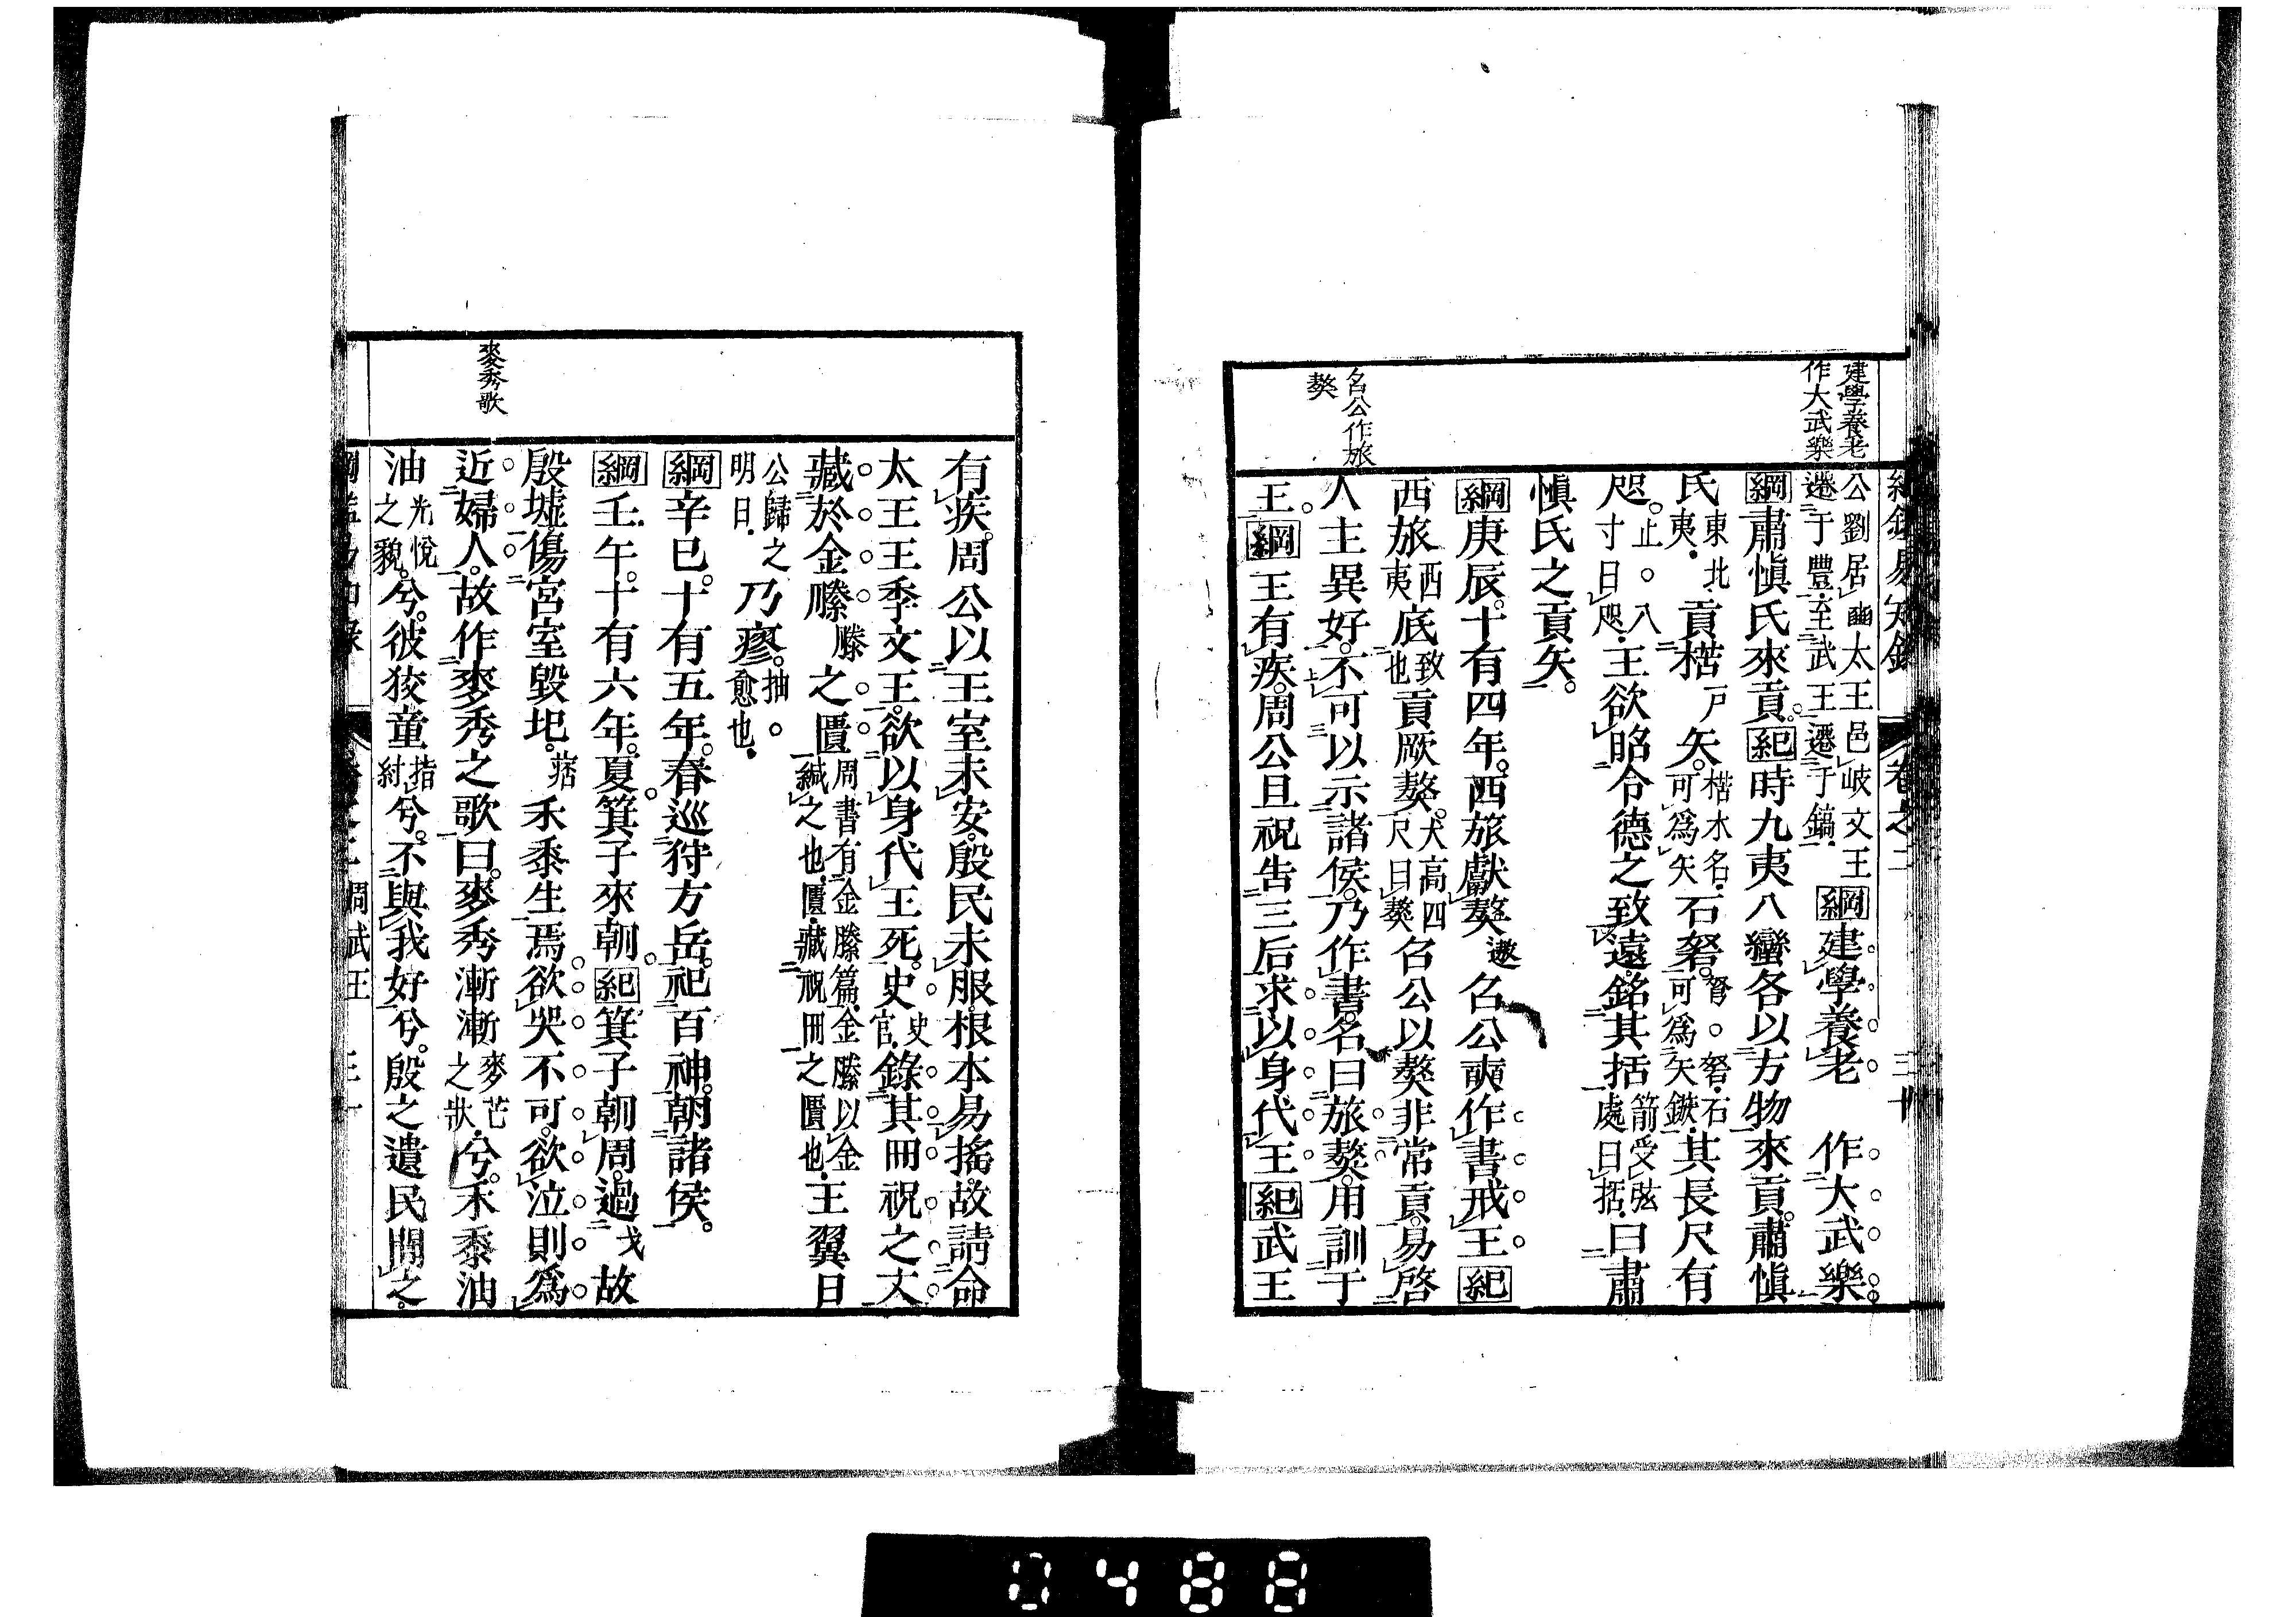 建學養老
作大武樂
名公作旅
獒
綱鑑易知錄 卷之二 三十
公劉居豳太王邑岐文王
遷于豐至武王遷于鎬綱建學養老 作大武樂。
綱肅愼氏來貢。紀時九夷八蠻各以方物來貢。肅愼
氏東北夷貢楛戸矢。楛木名可爲矢石砮。弩。砮石可爲矢鏃其長尺有
咫。止。八寸曰咫王欲昭令德之致遠。銘其括箭受弦處曰括曰肅
愼氏之貢矢。
綱庚辰。十有四年。西旅獻獒遨召公奭作書戒王紀
西旅西夷底致也貢厥獒。犬高四尺曰獒召公以獒非常貢。易啓
人主異好。不可以示諸侯。乃作書。名曰旅獒。用訓于
王。綱王有疾。周公旦祝告三后求以身代王紀武王
有疾。周公以王室未安。殷民未服。根本易搖。故請命
太王王季文王。欲以身代王死。史史官錄其冊祝之文
藏於金縢滕之匱周書有金縢篇金縢以金緘之也匱藏祝冊之匱也王翼日
公歸之明日乃瘳。抽。愈也
綱辛巳。十有五年。春巡狩方岳。祀百神。朝諸侯。
綱壬午。十有六年。夏箕子來朝紀箕子朝周。過戈故
殷墟。傷宮室毀圯。痞禾黍生焉欲哭不可。欲泣則爲
近婦人。故作麥秀之歌曰。麥秀漸漸麥芒之狀兮。禾黍油
油光悅之貌兮。彼狡童指紂兮。不與我好兮。殷之遺民聞之。
麥秀歌
周武王
0488